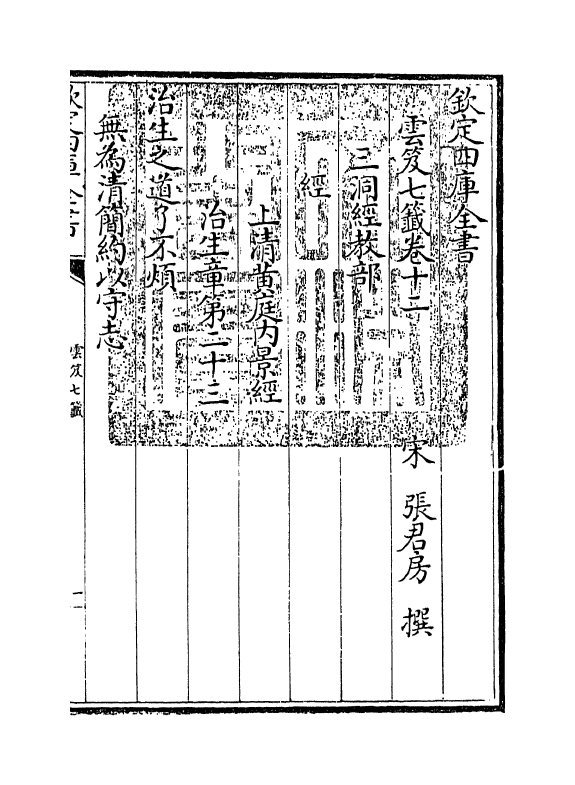 欽定四庫全書
雲笈七籤卷十二
宋 張君房 撰
三洞經教部
經
上清黄庭内景經
治生章第二十三
治生之道了不煩
無為清簡約以守志
欽定四庫全書
雲笈七籤